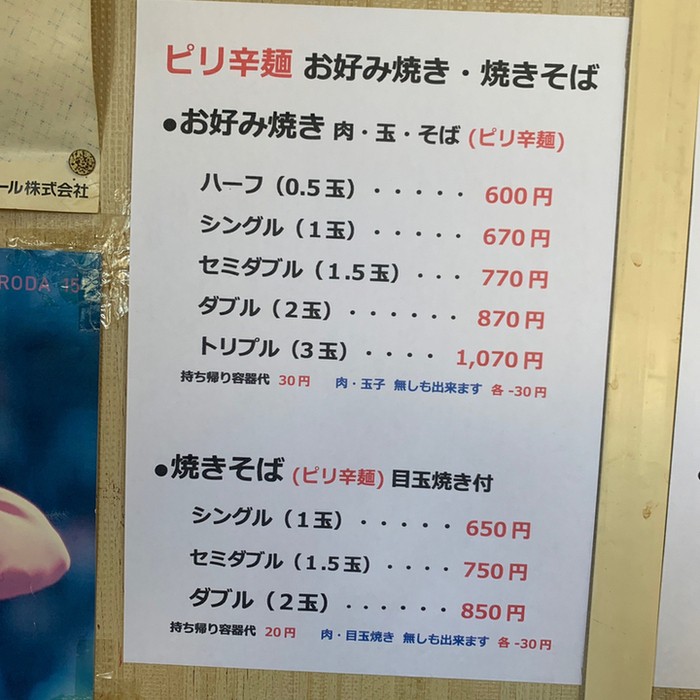 ピリ辛麺 お好み焼き・焼きそば
●お好み焼き 肉・玉・そば (ピリ辛麺)
ハーフ（0.5玉）・・・・・ 600円
シングル（1玉）・・・・・ 670円
セミダブル（1.5玉）・・・ 770円
ダブル（2玉）・・・・・・ 870円
トリプル（3玉）・・・・ 1,070円
持ち帰り容器代 30円 肉・玉子 無しも出来ます 各 -30円
●焼きそば (ピリ辛麺) 目玉焼き付
シングル（1玉）・・・・・ 650円
セミダブル（1.5玉）・・・・ 750円
ダブル（2玉）・・・・・・ 850円
持ち帰り容器代 20円 肉・目玉焼き 無しも出来ます 各 -30円
ール株式会社
RODA 15